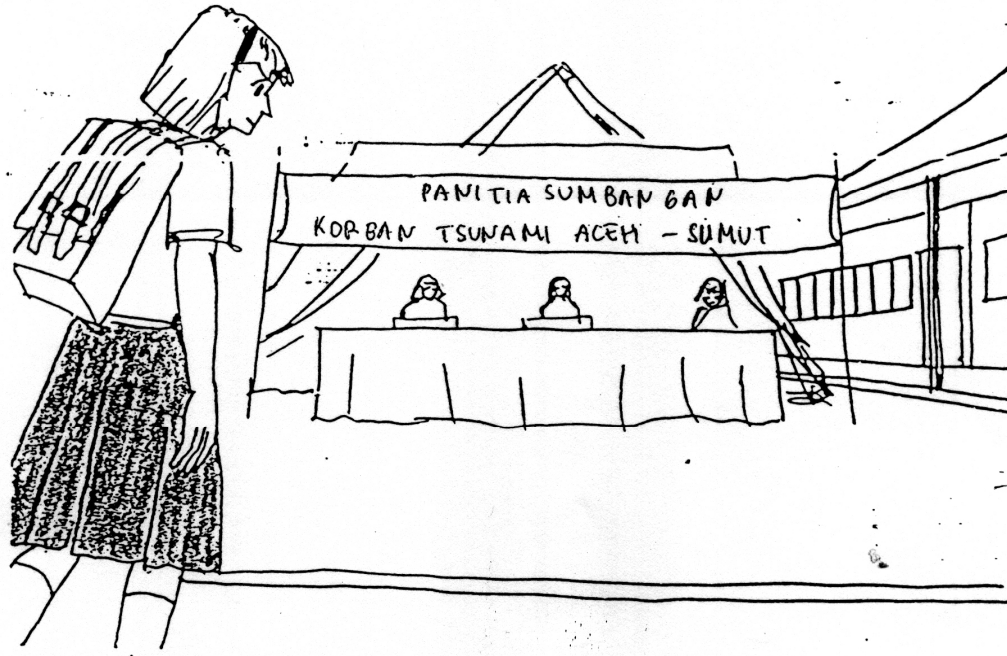 PANITIA SUMBANGAN
KORBAN TSUNAMI ACEH - SUMUT